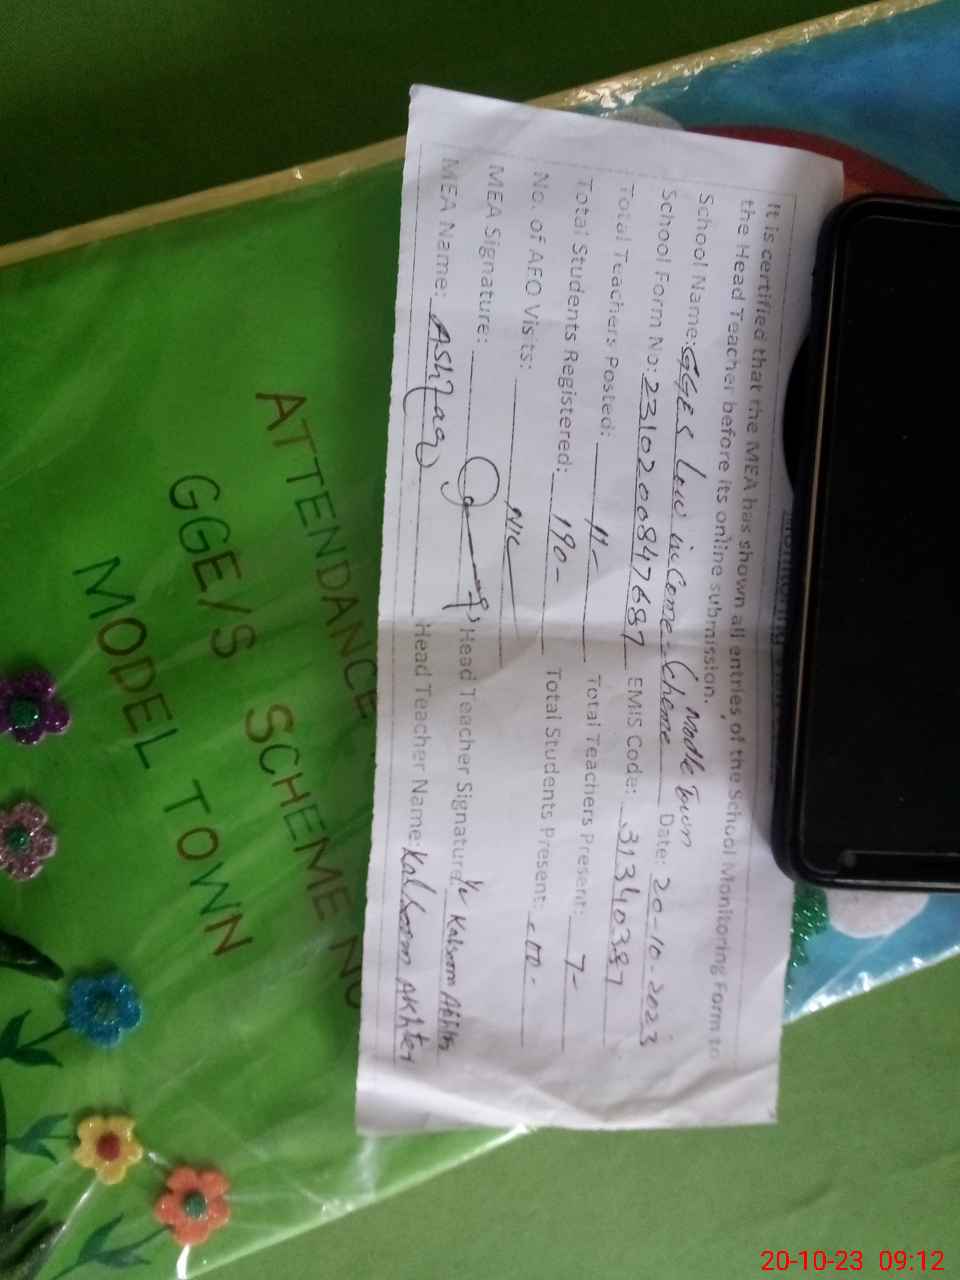 It is certified that the MEA has shown all entries of the School Monitoring Form to
the Head Teacher before its online submission.
School Name: GGES Low inCome Scheme Modle Town Date: 20-10-2023
School Form No: 2310200847687 EMIS Code: 31340387
Total Teachers Posted: 11- Total Teachers Present: 7-
Total Students Registered: 190- Total Students Present:
No. of AEO Visits: NIL
MEA Signature: Head Teacher Signature: Kalsoom Akhter
MEA Name: Ashfaq Head Teacher Name: Kalsoom Akhter
ATTENDANCE
GGE/S SCHEME NO
MODEL TOWN
20-10-23 09:12